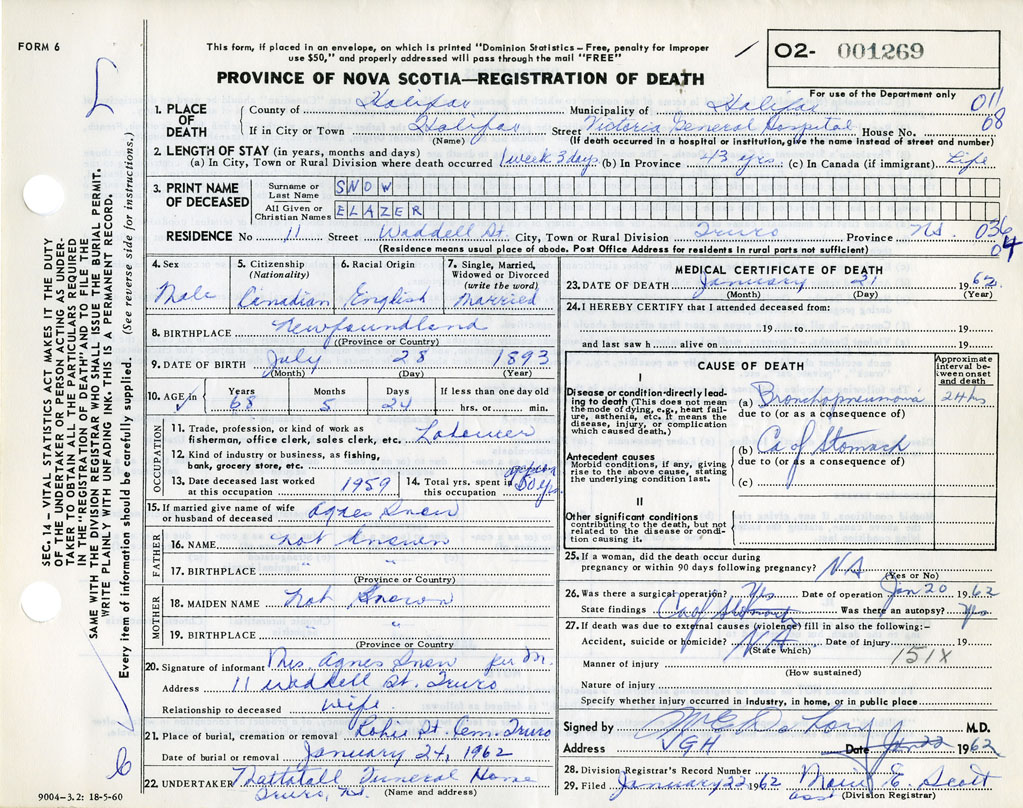 FORM 6
This form, if placed in an envelope, on which is printed "Dominion Statistics – Free, penalty for improper
use $50," and properly addressed will pass through the mail "FREE"
PROVINCE OF NOVA SCOTIA—REGISTRATION OF DEATH
02- 001269
For use of the Department only
011
08
1. PLACE OF DEATH
County of Halifax Municipality of Halifax
If in City or Town Halifax Street Victoria General Hospital House No.
(Name) (If death occurred in a hospital or institution, give the name instead of street and number)
2. LENGTH OF STAY (in years, months and days)
(a) In City, Town or Rural Division where death occurred 1 week 3 days (b) In Province 43 yrs. (c) In Canada (if immigrant) Life
3. PRINT NAME OF DECEASED
Surname or Last Name SNOW
All Given or Christian Names ELAZER
RESIDENCE No. 11 Street Waddell St. City, Town or Rural Division Truro Province N.S. 036
04
(Residence means usual place of abode. Post Office Address for residents in rural parts not sufficient)
4. Sex
Male
5. Citizenship
(Nationality)
Canadian
6. Racial Origin
English
7. Single, Married,
Widowed or Divorced
(write the word)
Married
8. BIRTHPLACE Newfoundland
(Province or Country)
9. DATE OF BIRTH July 28 1893
(Month) (Day) (Year)
10. AGE in
Years Months Days If less than one day old
68 5 24 hrs. or min.
OCCUPATION
11. Trade, profession, or kind of work as
fisherman, office clerk, sales clerk, etc. Labourer
12. Kind of industry or business, as fishing,
bank, grocery store, etc.
13. Date deceased last worked
at this occupation 1959
14. Total yrs. spent in
this occupation 50 yrs.
15. If married give name of wife
or husband of deceased Agnes Snow
FATHER
16. NAME not known
17. BIRTHPLACE " "
(Province or Country)
MOTHER
18. MAIDEN NAME not known
19. BIRTHPLACE " "
(Province or Country)
20. Signature of informant Mrs. Agnes Snow per M.
Address 11 Waddell St. Truro
Relationship to deceased wife
21. Place of burial, cremation or removal Robie St. Cem. Truro
Date of burial or removal January 24, 1962
22. UNDERTAKER Mattatall Funeral Home
Truro, N.S. (Name and address)
9004–3.2: 18-5-60
MEDICAL CERTIFICATE OF DEATH
23. DATE OF DEATH January 21 1962
(Month) (Day) (Year)
24. I HEREBY CERTIFY that I attended deceased from:
19 to 19
and last saw h alive on 19
CAUSE OF DEATH
Approximate interval between onset and death
I
Disease or condition directly leading to death (This does not mean
the mode of dying, e.g., heart failure, asthenia, etc. It means the
disease, injury, or complication
which caused death.)
(a) Bronchopneumonia 24 hrs
due to (or as a consequence of)
Antecedent causes
Morbid conditions, if any, giving
rise to the above cause, stating
the underlying condition last.
(b) Ca of Stomach
due to (or as a consequence of)
(c)
II
Other significant conditions
contributing to the death, but not
related to the disease or condition causing it.
25. If a woman, did the death occur during
pregnancy or within 90 days following pregnancy? NA
(Yes or No)
26. Was there a surgical operation? Yes Date of operation Jan 20 1962
State findings Ca of Stomach Was there an autopsy? Yes
27. If death was due to external causes (violence) fill in also the following:–
Accident, suicide or homicide? NA Date of injury 19
(State which)
151X
Manner of injury
(How sustained)
Nature of injury
Specify whether injury occurred in Industry, in home, or in public place
Signed by M.D.
Address VGH Date Jan 22 1962
28. Division Registrar's Record Number
29. Filed January 22 1962 E. Scott
(Division Registrar)
SEC. 14 – VITAL STATISTICS ACT MAKES IT THE DUTY
OF THE UNDERTAKER OR PERSON ACTING AS UNDERTAKER TO OBTAIN ALL THE PARTICULARS REQUIRED
IN THE "REGISTRATION OF DEATH" AND TO FILE THE
SAME WITH THE DIVISION REGISTRAR WHO SHALL ISSUE THE BURIAL PERMIT.
WRITE PLAINLY WITH UNFADING INK. THIS IS A PERMANENT RECORD.
Every item of information should be carefully supplied. (See reverse side for instructions.)